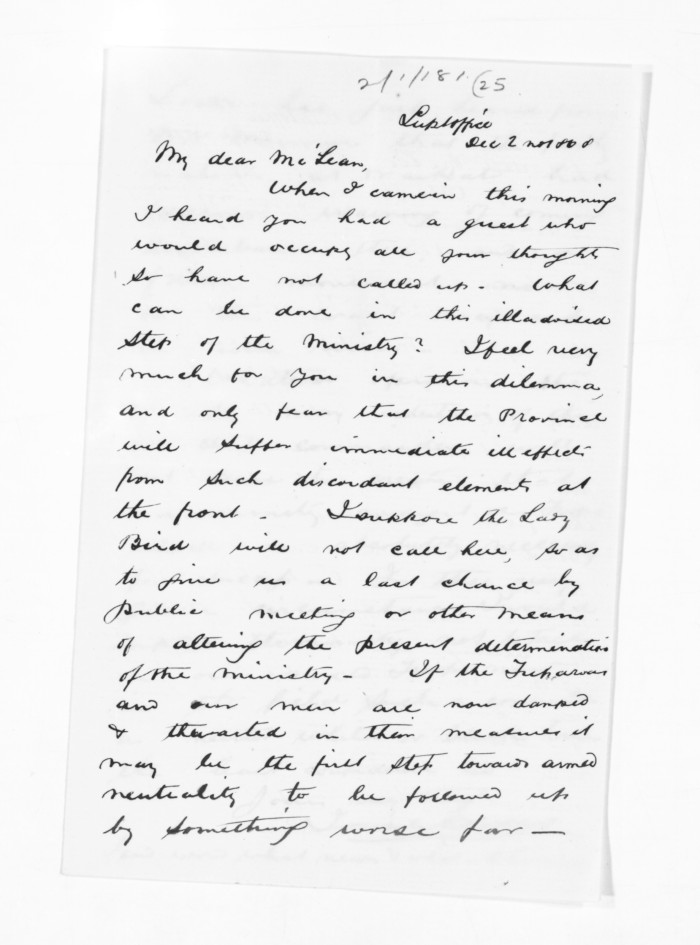 2/1/181 (25
Suptoffice
Dec 2 nd 1868
My dear McLean,
When I camein this morning
I heard you had a guest who
would occupy all your thoughts
so have not called up - What
can be done in this illadvised
step of the Ministry? I feel very
much for you in this dilemma,
and only fear that the Province
will suffer immediate ill effects
from such discordant elements at
the front - I suppose the Lady
Bird will not call here, so as
to give us a last chance by
public meeting or other means
of altering the present determination
of the Ministry - If the
and our men are now damped
& thwarted in their measures it
may be the first step towards armed
neutrality to be followed up
by something worse far -